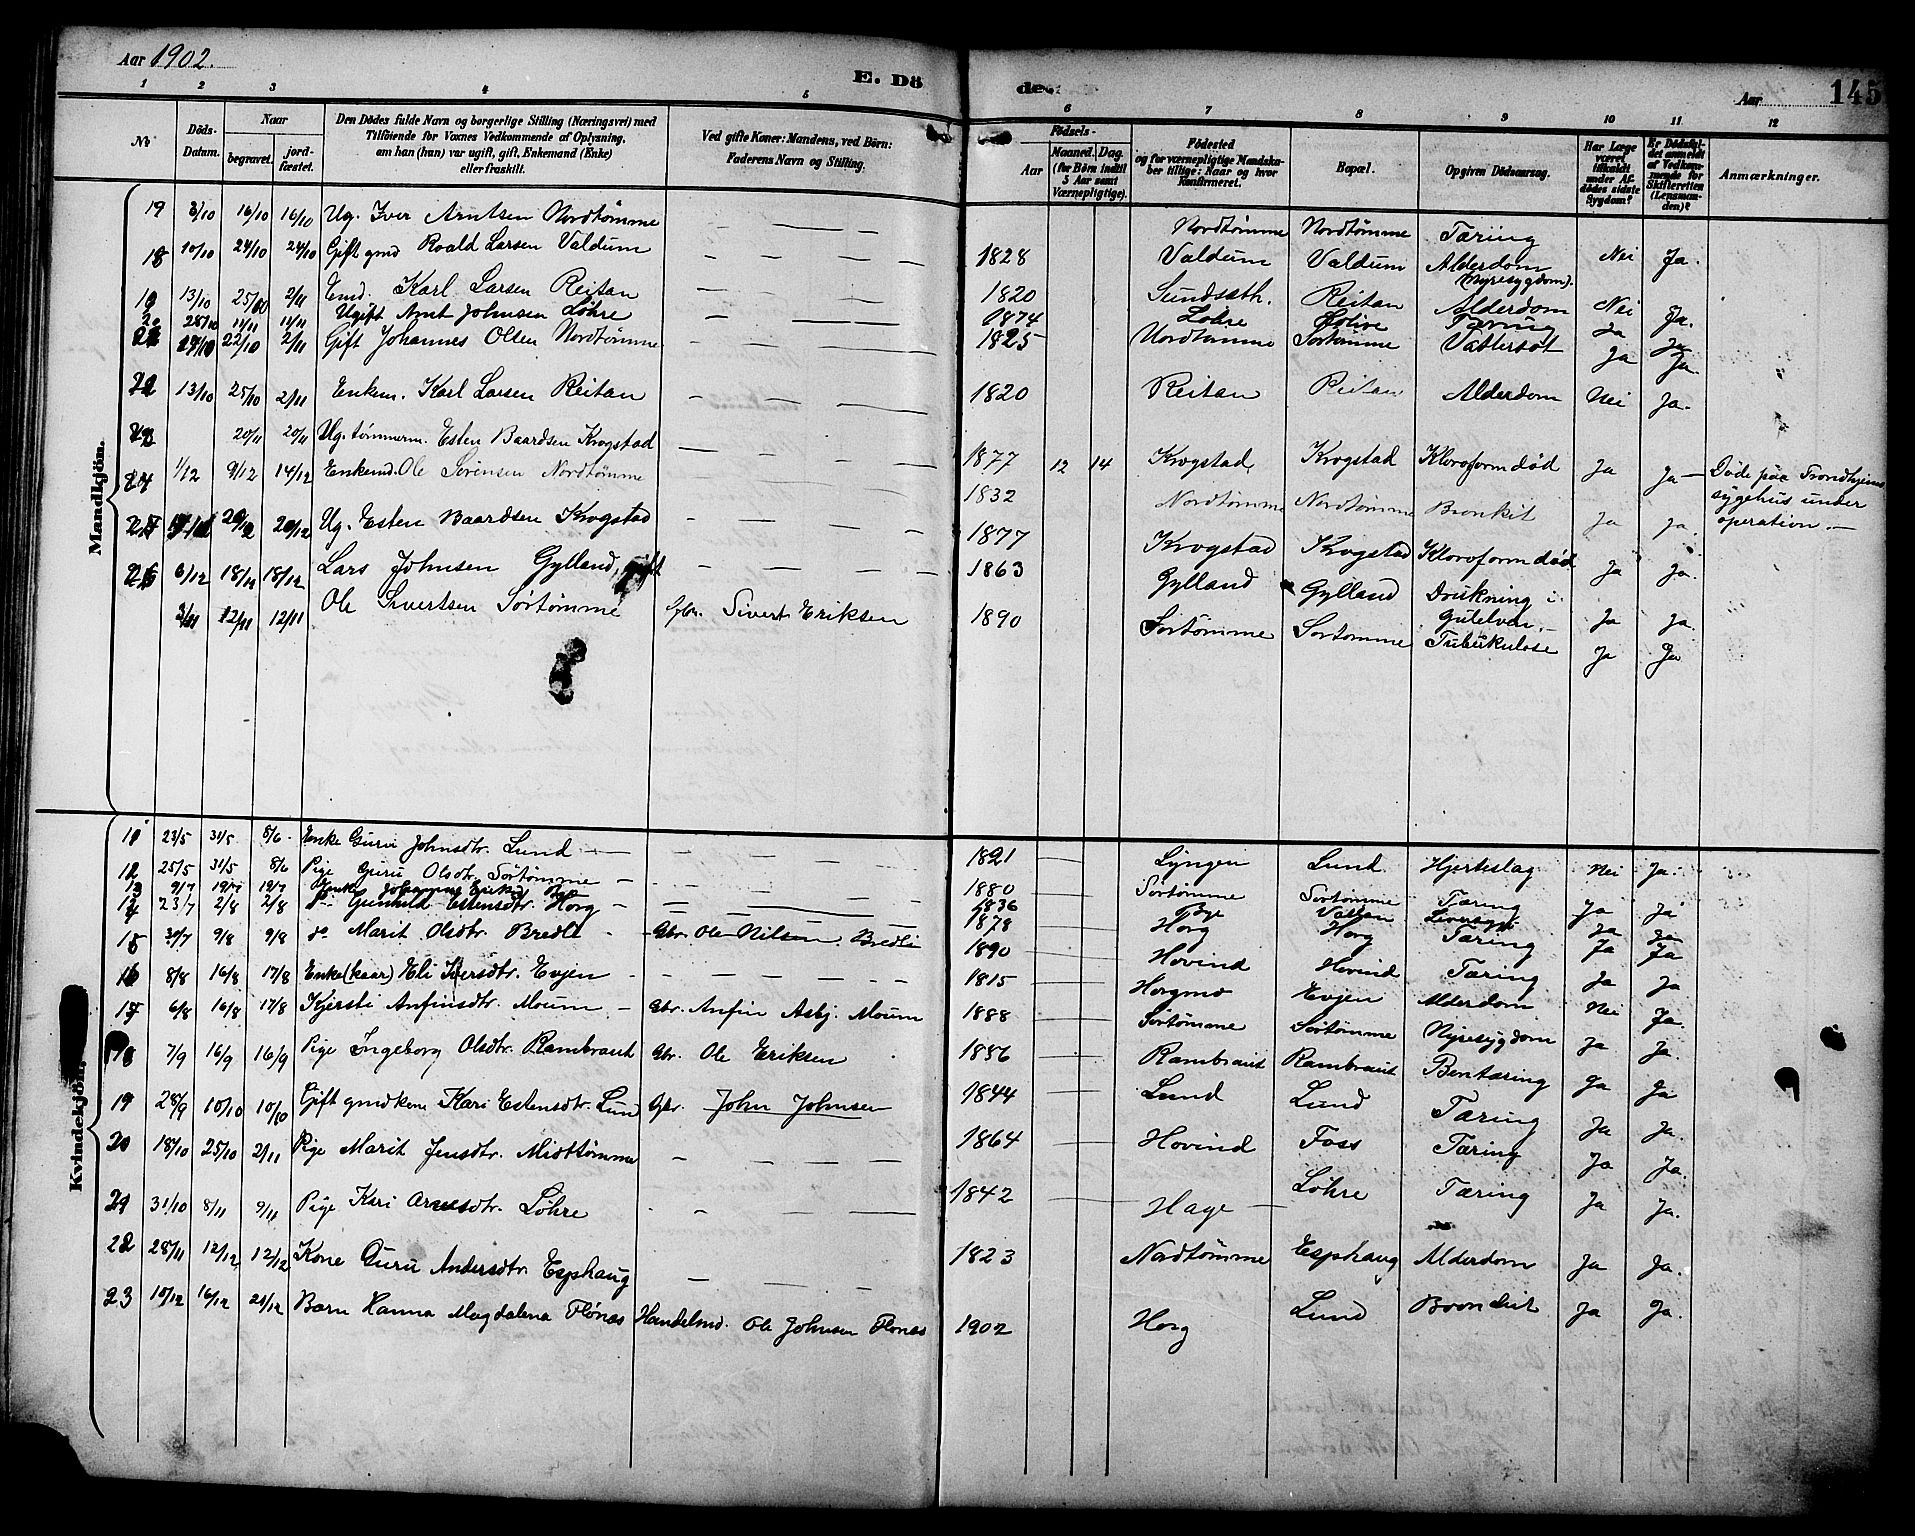 Aar 1902.
E. Dö
de.
Aar
145
1 2 3 4 5 6 7 8 9 10 11 12
No
Döds-Datum.
Naar
begravet.
jord-fæstet.
Den Dödes fulde Navn og borgerlige Stilling (Næringsvei) med
Tilföiende for Voxnes Vedkommende af Oplysning,
om han (hun) var ugift, gift, Enkemand (Enke)
eller fraskilt.
Ved gifte Koner: Mandens, ved Börn:
Faderens Navn og Stilling.
Födsels-
Aar
Maaned. Dag.
(for Börn indtil
5 Aar samt
Værnepligtige).
Födested
og for værnepligtige Mandska-
ber tillige: Naar og hvor
Konfirmeret.
Bopæl.
Opgiven Dödsaarsag.
Har Læge
været
tilkaldt
under Af-
dödes sidste
Sygdom?
Er Dödsfal-
det anmeldt
af Vedkom-
mende for
Skifteretten
(Lensman-
den)?
Anmærkninger.
Mandkjön.
19 3/10 16/10 16/10 Ug. Iver Arntsen Nordtømme — — — Nordtømme Nordtømme Tæring
18 10/10 24/10 24/10 Gift gmd Roald Larsen Valdum — — — 1828 Valdum Valdum Alderdom (Nyresygdom). Nei Ja.
13/10 2/11 Emd. Karl Larsen Reitan — — — 1820 Sundsæth. Reitan Alderdom Nei Ja.
28/10 11/11 11/11 Ugift Arnt Johnsen Løhre — — — 1874 Løhre Tæring Ja Ja
22/10 2/11 Gift Johannes Olsen Nordtømme — — — 1825 Nordtømme Sørtømme Vattersot Ja Ja.
13/10 25/10 2/11 Enkem. Karl Larsen Reitan — — — 1820 Reitan Reitan Alderdom Nei Ja.
20/11 20/11 Ug. tømmerm. Esten Baardsen Krogstad — — — 1877 12 14 Krogstad Krogstad Kloroformdød Ja Ja — Døde paa Trondhjems
sygehus under
operation. —
1/12 9/12 14/12 Enkemd. Ole Sørensen Nordtømme — — — 1832 Nordtømme Nordtømme Bronkit Ja Ja
20/12 20/12 Ug. Esten Baardsen Krogstad — — — 1877 Krogstad Krogstad Kloroformdød Ja Ja.
6/12 18/12 18/12 Lars Johnsen Gylland, gift — — — 1863 Gylland Gylland Drukning i
Gulelven. — Ja Ja.
3/11 12/11 12/11 Ole Sivertsen Sørtømme Gbr. Sivert Eriksen 1890 Sørtømme Sørtømme Tuberkulose Ja Ja
Kvindekjön.
11 23/5 31/5 8/6 Enke Gurvi Johnsdtr. Lund — — — 1821 Lyngen Lund Hjerteslag Nei Ja.
12 25/5 31/5 8/6 Pige Guru Olsdtr. Sørtømme — — — 1880 Sørtømme Sørtømme Tæring Ja Ja
13 9/7 19/7 19/7 Enke Johanna — — — 1836 Bye Ja Ja
14 23/7 2/8 2/8 Gunhild Estensdtr. Horg — — — 1878 Horg Horg Tæring Ja Ja
15 30/7 9/8 9/8 do Marit Olsdtr. Bredli Gbr. Ole Nilsen Bredli 1890 Hovind Hovind Tæring Ja Ja
16 8/8 16/8 17/8 Enke (kaar) Eli Iversdtr. Evjen — — — 1815 Horgmo Evjen Alderdom Nei Ja.
17 6/8 16/8 17/8 Kjersti Anfinsdtr. Moum — Gbr. Anfin Asbj. Moum 1888 Sørtømme Sørtømme Nyresygdom Ja Ja.
18 7/9 16/9 16/9 Pige Ingeborg Olsdtr. Rambraut Gbr. Ole Eriksen 1886 Rambraut Rambraut Bentæring Ja Ja
19 28/9 10/10 10/10 Gift gmdkone Kari Estensdtr. Lund Gbr. John Johnsen 1844 Lund Lund Tæring Ja Ja.
20 18/10 25/10 2/11 Pige Marit Jensdtr. Midttømme — — — 1864 Hovind Foss Tæring Ja Ja.
21 31/10 8/11 9/11 Pige Kari Arnesdtr. Løhre — — — 1842 Hage Løhre Tæring Ja Ja.
22 28/11 12/12 12/12 Kone Guru Andersdtr. Esphaug — — — 1823 Nordtømme Esphaug Alderdom Ja Ja.
23 10/12 16/12 21/12 Barn Hanna Magdalena Flønæs Handelsmd. Ole Johnsen Flønæs 1902 Horg Lund Bronchit Ja Ja.